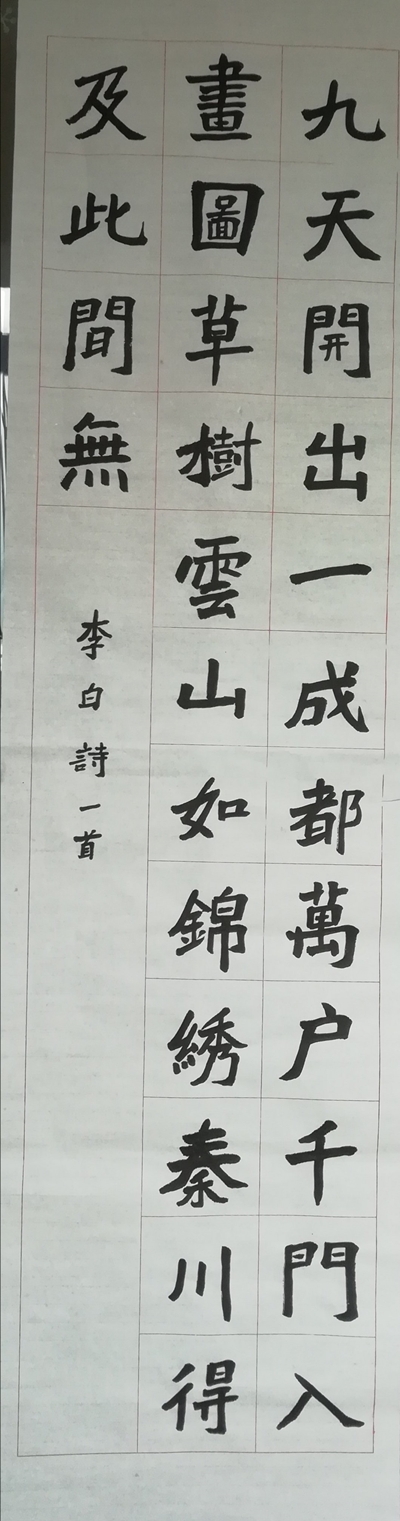 九天開出一成都萬户千門入
畫圖草樹雲山如錦綉秦川得
及此間無
李白詩一首